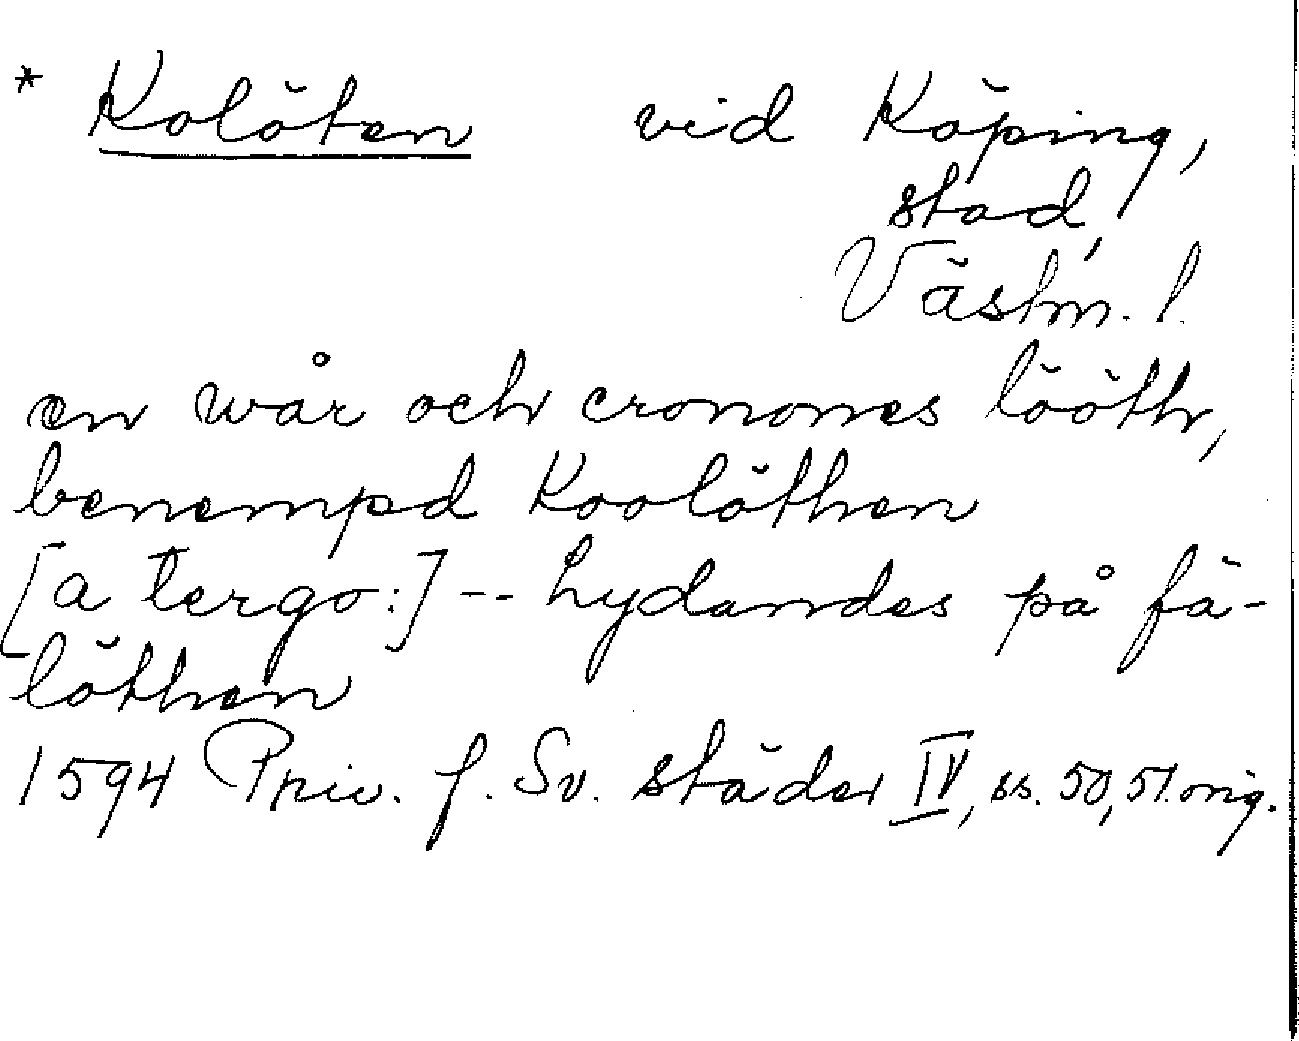 * Kolöten vid Köping,
stad,
Västm. l.
en wår och cronones lööth,
benempd Koolöthen
[a tergo:] -- Lydandes på fä-
löthen
1594 Priv. f. Sv. städer IV, ss. 50, 51. orig.